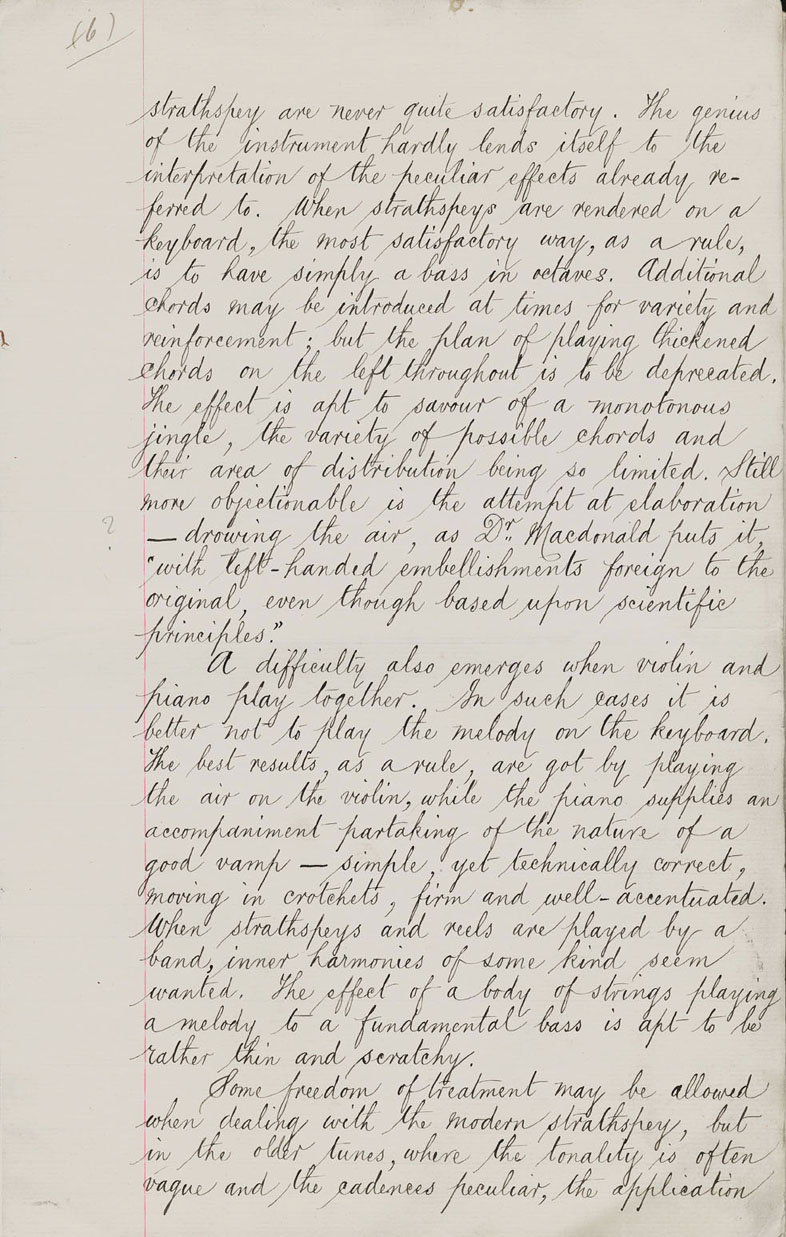 (6)
strathspey are never quite satisfactory. The genius
of the instrument hardly lends itself to the
interpretation of the peculiar effects already re-
ferred to. When strathspeys are rendered on a
keyboard, the most satisfactory way, as a rule,
is to have simply a bass in octaves. Additional
chords may be introduced at times for variety and
reinforcement; but the plan of playing thickened
chords on the left throughout is to be deprecated.
The effect is apt to savour of a monotonous
jingle, the variety of possible chords and
their area of distribution being so limited. Still
more objectionable is the attempt at elaboration
? — drowing the air, as Dr. Macdonald puts it,
"with left-handed embellishments foreign to the
original, even though based upon scientific
principles."
A difficulty also emerges when violin and
piano play together. In such cases it is
better not to play the melody on the keyboard.
The best results, as a rule, are got by playing
the air on the violin, while the piano supplies an
accompaniment partaking of the nature of a
good vamp — simple, yet technically correct,
moving in crotchets, firm and well-accentuated.
When strathspeys and reels are played by a
band, inner harmonies of some kind seem
wanted. The effect of a body of strings playing
a melody to a fundamental bass is apt to be
rather thin and scratchy.
Some freedom of treatment may be allowed
when dealing with the modern strathspey, but
in the older tunes, where the tonality is often
vague and the cadences peculiar, the application